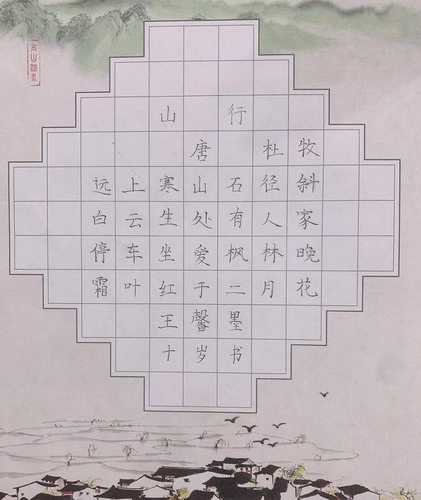 山行
唐 杜牧
远上寒山石径斜
白云生处有人家
停车坐爱枫林晚
霜叶红于二月花
王馨墨
十岁书